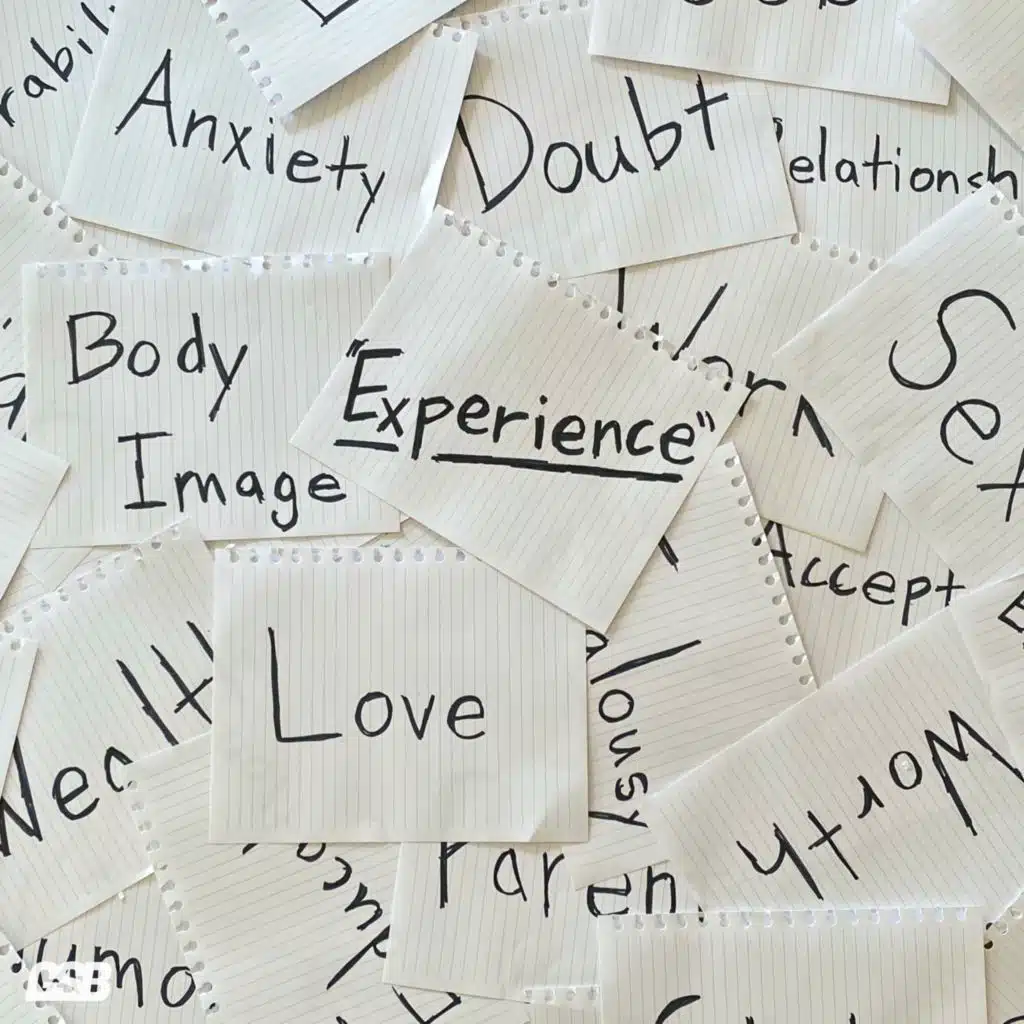 rabili
Anxiety
Doubt
elationsh
Body
Image
"Experience"
Wor
Accept
Love
Wealt
alousy
Worth
Paren
umo
GSB